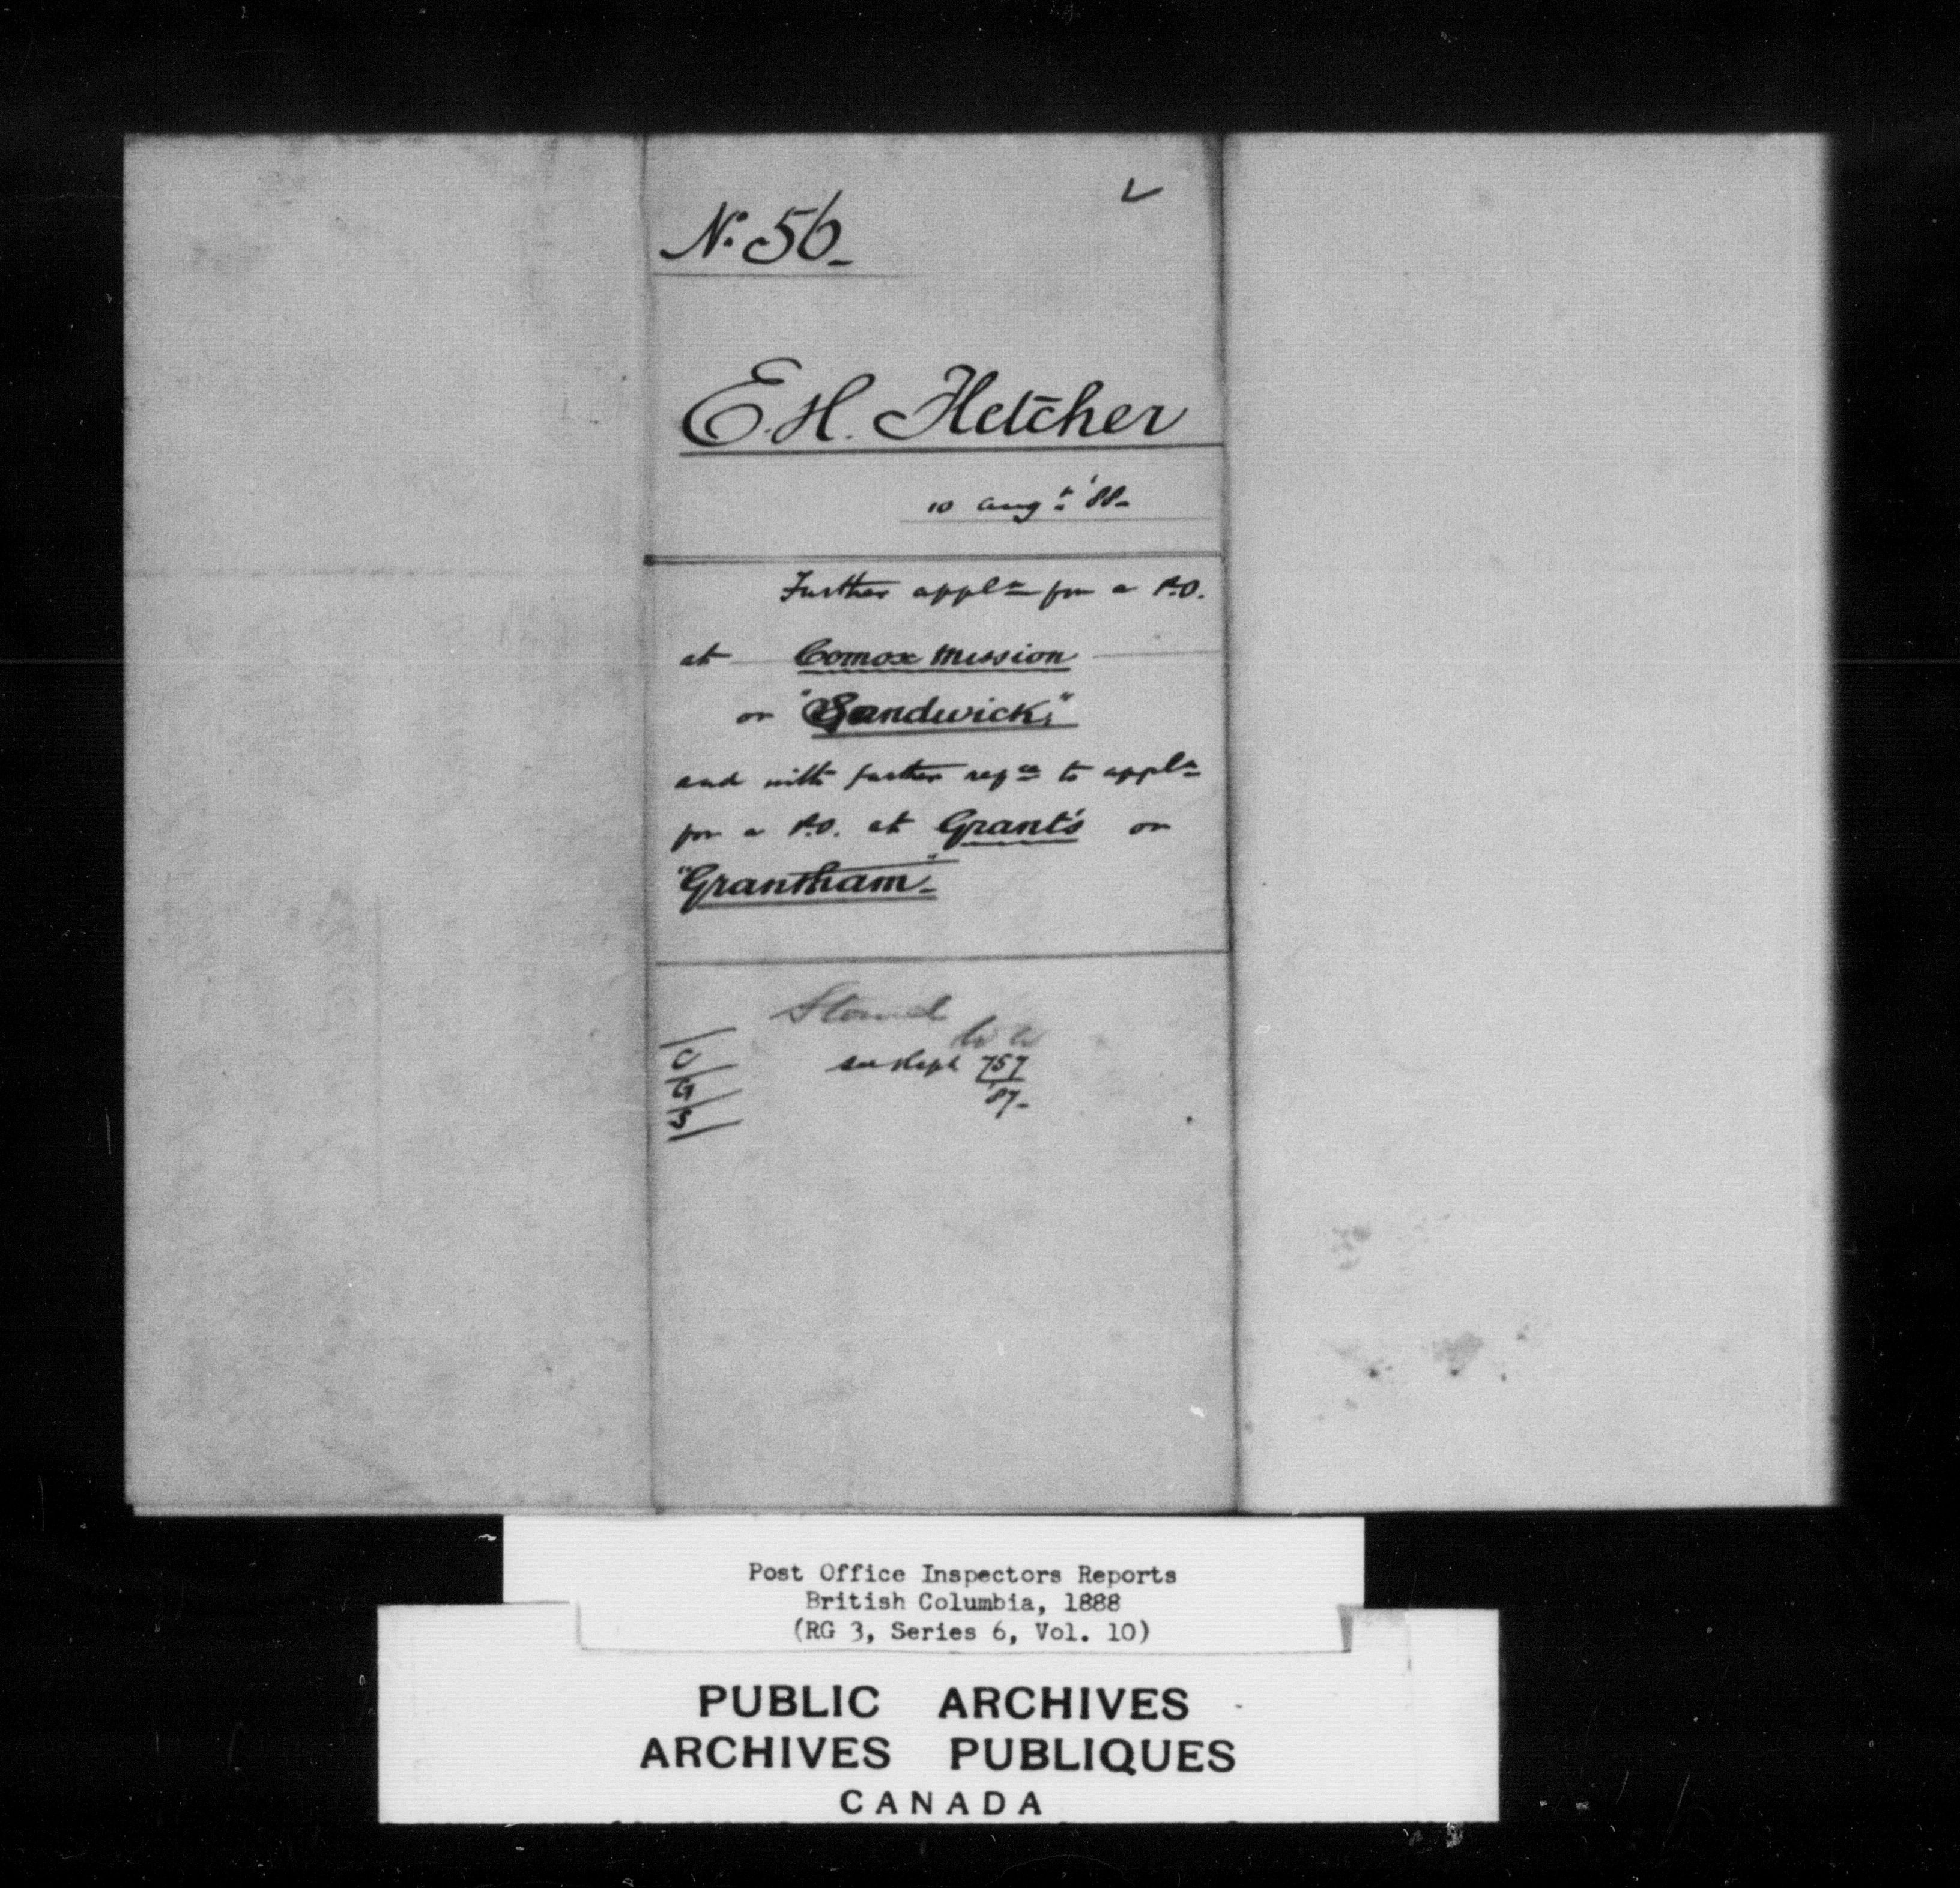 No. 56
E. H. Fletcher
10 Augt '88
Further appln for a P.O.
at Comox Mission
or "Sandwick,"
and with further refce to appln
for a P.O. at Grant's or
"Grantham"
Stand
C
G
S
see Rept 757
'87
Post Office Inspectors Reports
British Columbia, 1888
(RG 3, Series 6, Vol. 10)
PUBLIC ARCHIVES
ARCHIVES PUBLIQUES
CANADA